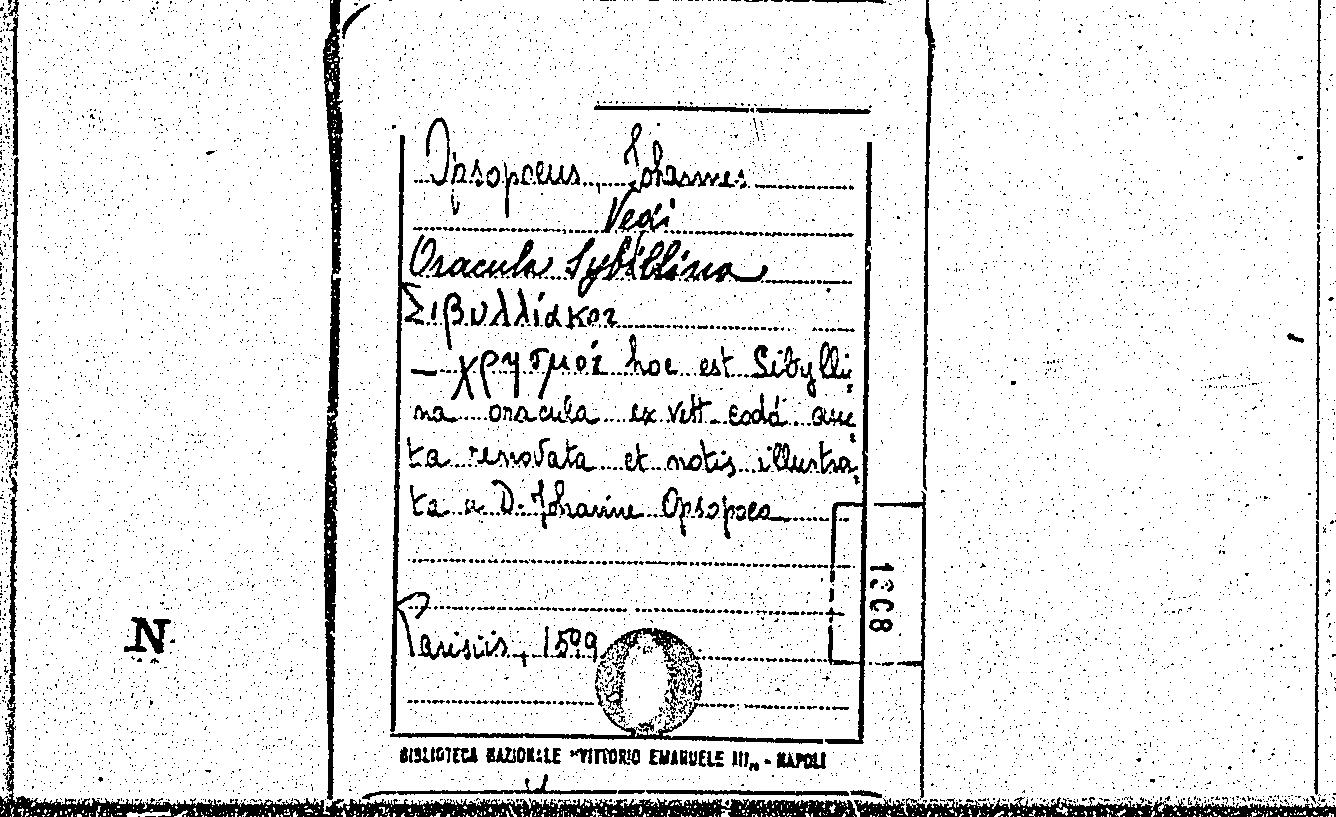 Opsopoeus, Johannes
Vedi
Oracula Sybillina
Σιβυλλίακοι
— χρησμοί hoc est Sibylli=
na oracula ex vett. codd. auc=
ta renovata et notis illustra=
ta a D. Johanne Opsopoeo
Parisiis, 1599
1308
N
BIBLIOTECA NAZIONALE "VITTORIO EMANUELE III„ - NAPOLI